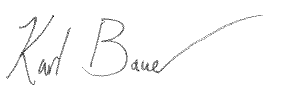 Karl Bauer